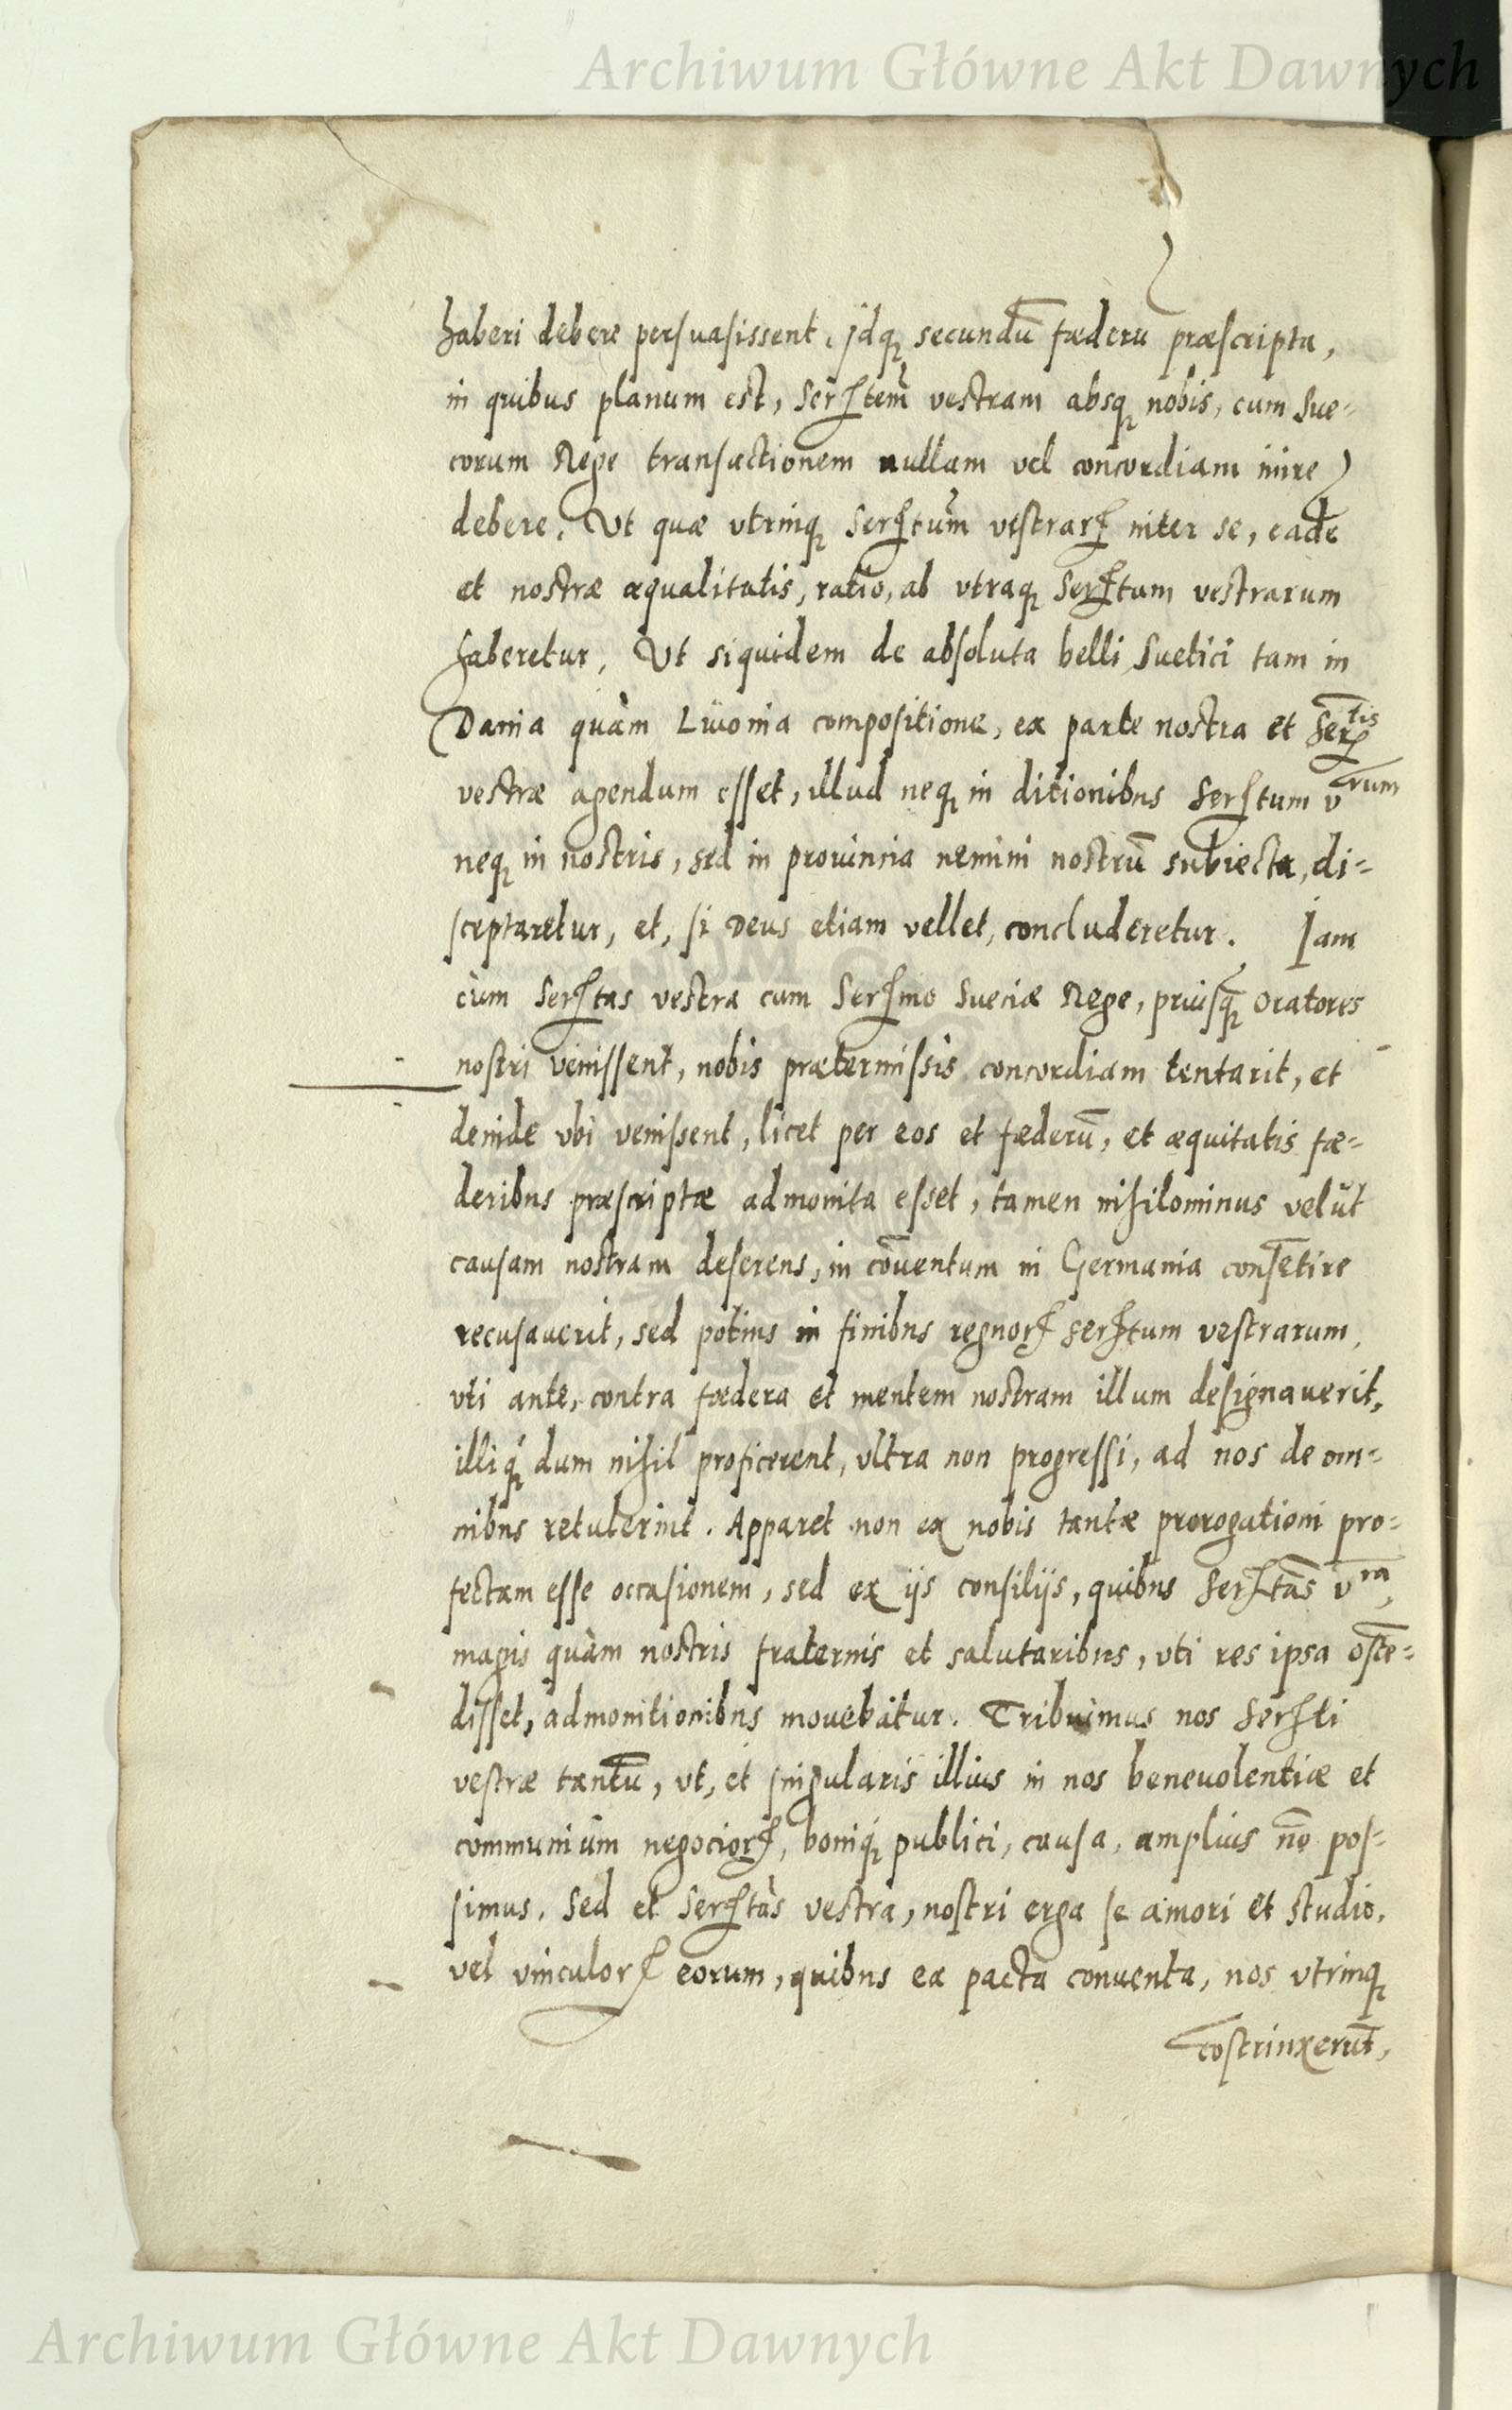 Archiwum Główne Akt Dawnych
haberi debere persuasissent, jdq₃ secundū fæderū præscripta,
in quibus planum est, Serꝭtem̄ vestram absq₃ nobis, cum Sue-
corum Rege transactionem nullam vel concordiam inire
debere. Ut quæ vtrinq₃ Serꝭtum̄ vestrarꝭ inter se, eadē
et nostræ æqualitatis, ratio, ab vtraq₃ Serꝭtum vestrarum
haberetur. Ut siquidem de absoluta belli Suetici tam in
Dania quàm Liuonia compositione, ex parte nostra et Serᵗⁱˢ
vestræ agendum esset, illud neq₃ in ditionibus Serꝭtum vʳᵘᵐ
neq₃ in nostris, sed in prouincia nemini nostrū subiecta, di-
sceptaretur, et, si Deus etiam vellet, concluderetur. Iam
cùm Serꝭtas vestra cum Serꝭmo Sueciæ Rege, priusq̄₃ Oratores
nostri venissent, nobis prætermissis concordiam tentarit, et
deinde vbi venissent, licet per eos et fæderū, et æquitatis fæ-
deribus præscriptæ admonita esset, tamen nihilominus velut
causam nostram deserens, in cōuentum in Germania consētire
recusauerit, sed potius in finibus regnorꝭ Serꝭtum vestrarum,
vti ante, contra fædera et mentem nostram illum designauerit,
illiq₃́ dum nihil proficerent, vltra non progressi, ad nos de om-
nibus retulerint. Apparet non ex nobis tantæ prorogationi pro-
fectam esse occasionem, sed ex ijs consilijs, quibus Serꝭtas vʳᵃ,
magis quàm nostris fraternis et salutaribus, vti res ipsa ostē-
disset, admonitionibus mouebatur. Tribuimus nos Serꝭti
vestræ tantū, vt, et singularis illius in nos beneuolentiæ et
communium negociorꝭ, boniq₃́ publici, causa, amplius nō pos-
simus. Sed et Serꝭtas vestra, nostri erga se amori et studio,
vel vinculorꝭ eorum, quibus ex pacta conuenta, nos vtrinq₃
cōstrinxerūt,
Archiwum Główne Akt Dawnych